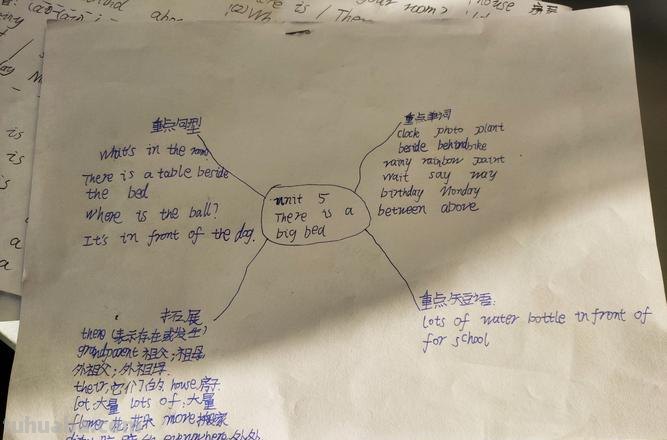 is / There
your room?
house
重点句型
what's in the room.
There is a table beside
the bed
where is the ball?
It's in front of the dog.
重点单词
clock photo plant
beside behind bike
rainy rainbow paint
wait say way
birthday Monday
between above
unit 5
There is a
big bed
拓展
there (表示存在或发生)
grandparent 祖父;祖母
外祖父;外祖母
their 它们的 house 房子
lot 大量 lots of 大量
flower 花,花朵 move 搬家
everywhere 处处
重点短语:
lots of water bottle in front of
for school
tuhua